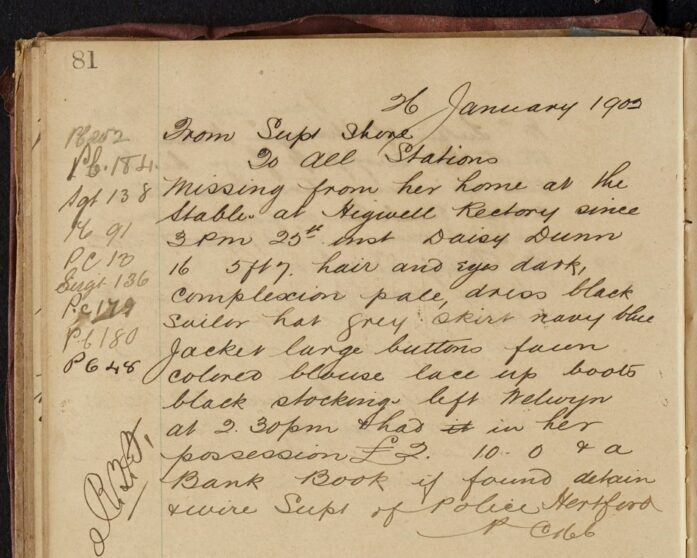 81
26 January 1902
From Supt Shore
To All Stations
Missing from her home at the
Stable at Higwell Rectory since
3 Pm 25st inst Daisy Dunn
16 5ft 7. hair and eyes dark,
complexion pale, dress black
Sailor hat grey skirt navy blue
Jacket large buttons fawn
colored blouse lace up boots
black stocking left Welwyn
at 2.30pm & had it in her
possession £2. 10. 0 & a
Bank Book if found detain
& wire Supt of Police Hertford
P.C. 184.
Sgt 138
91
P C 10
Sergt 136
Pc 179
Pc 180
P C 48